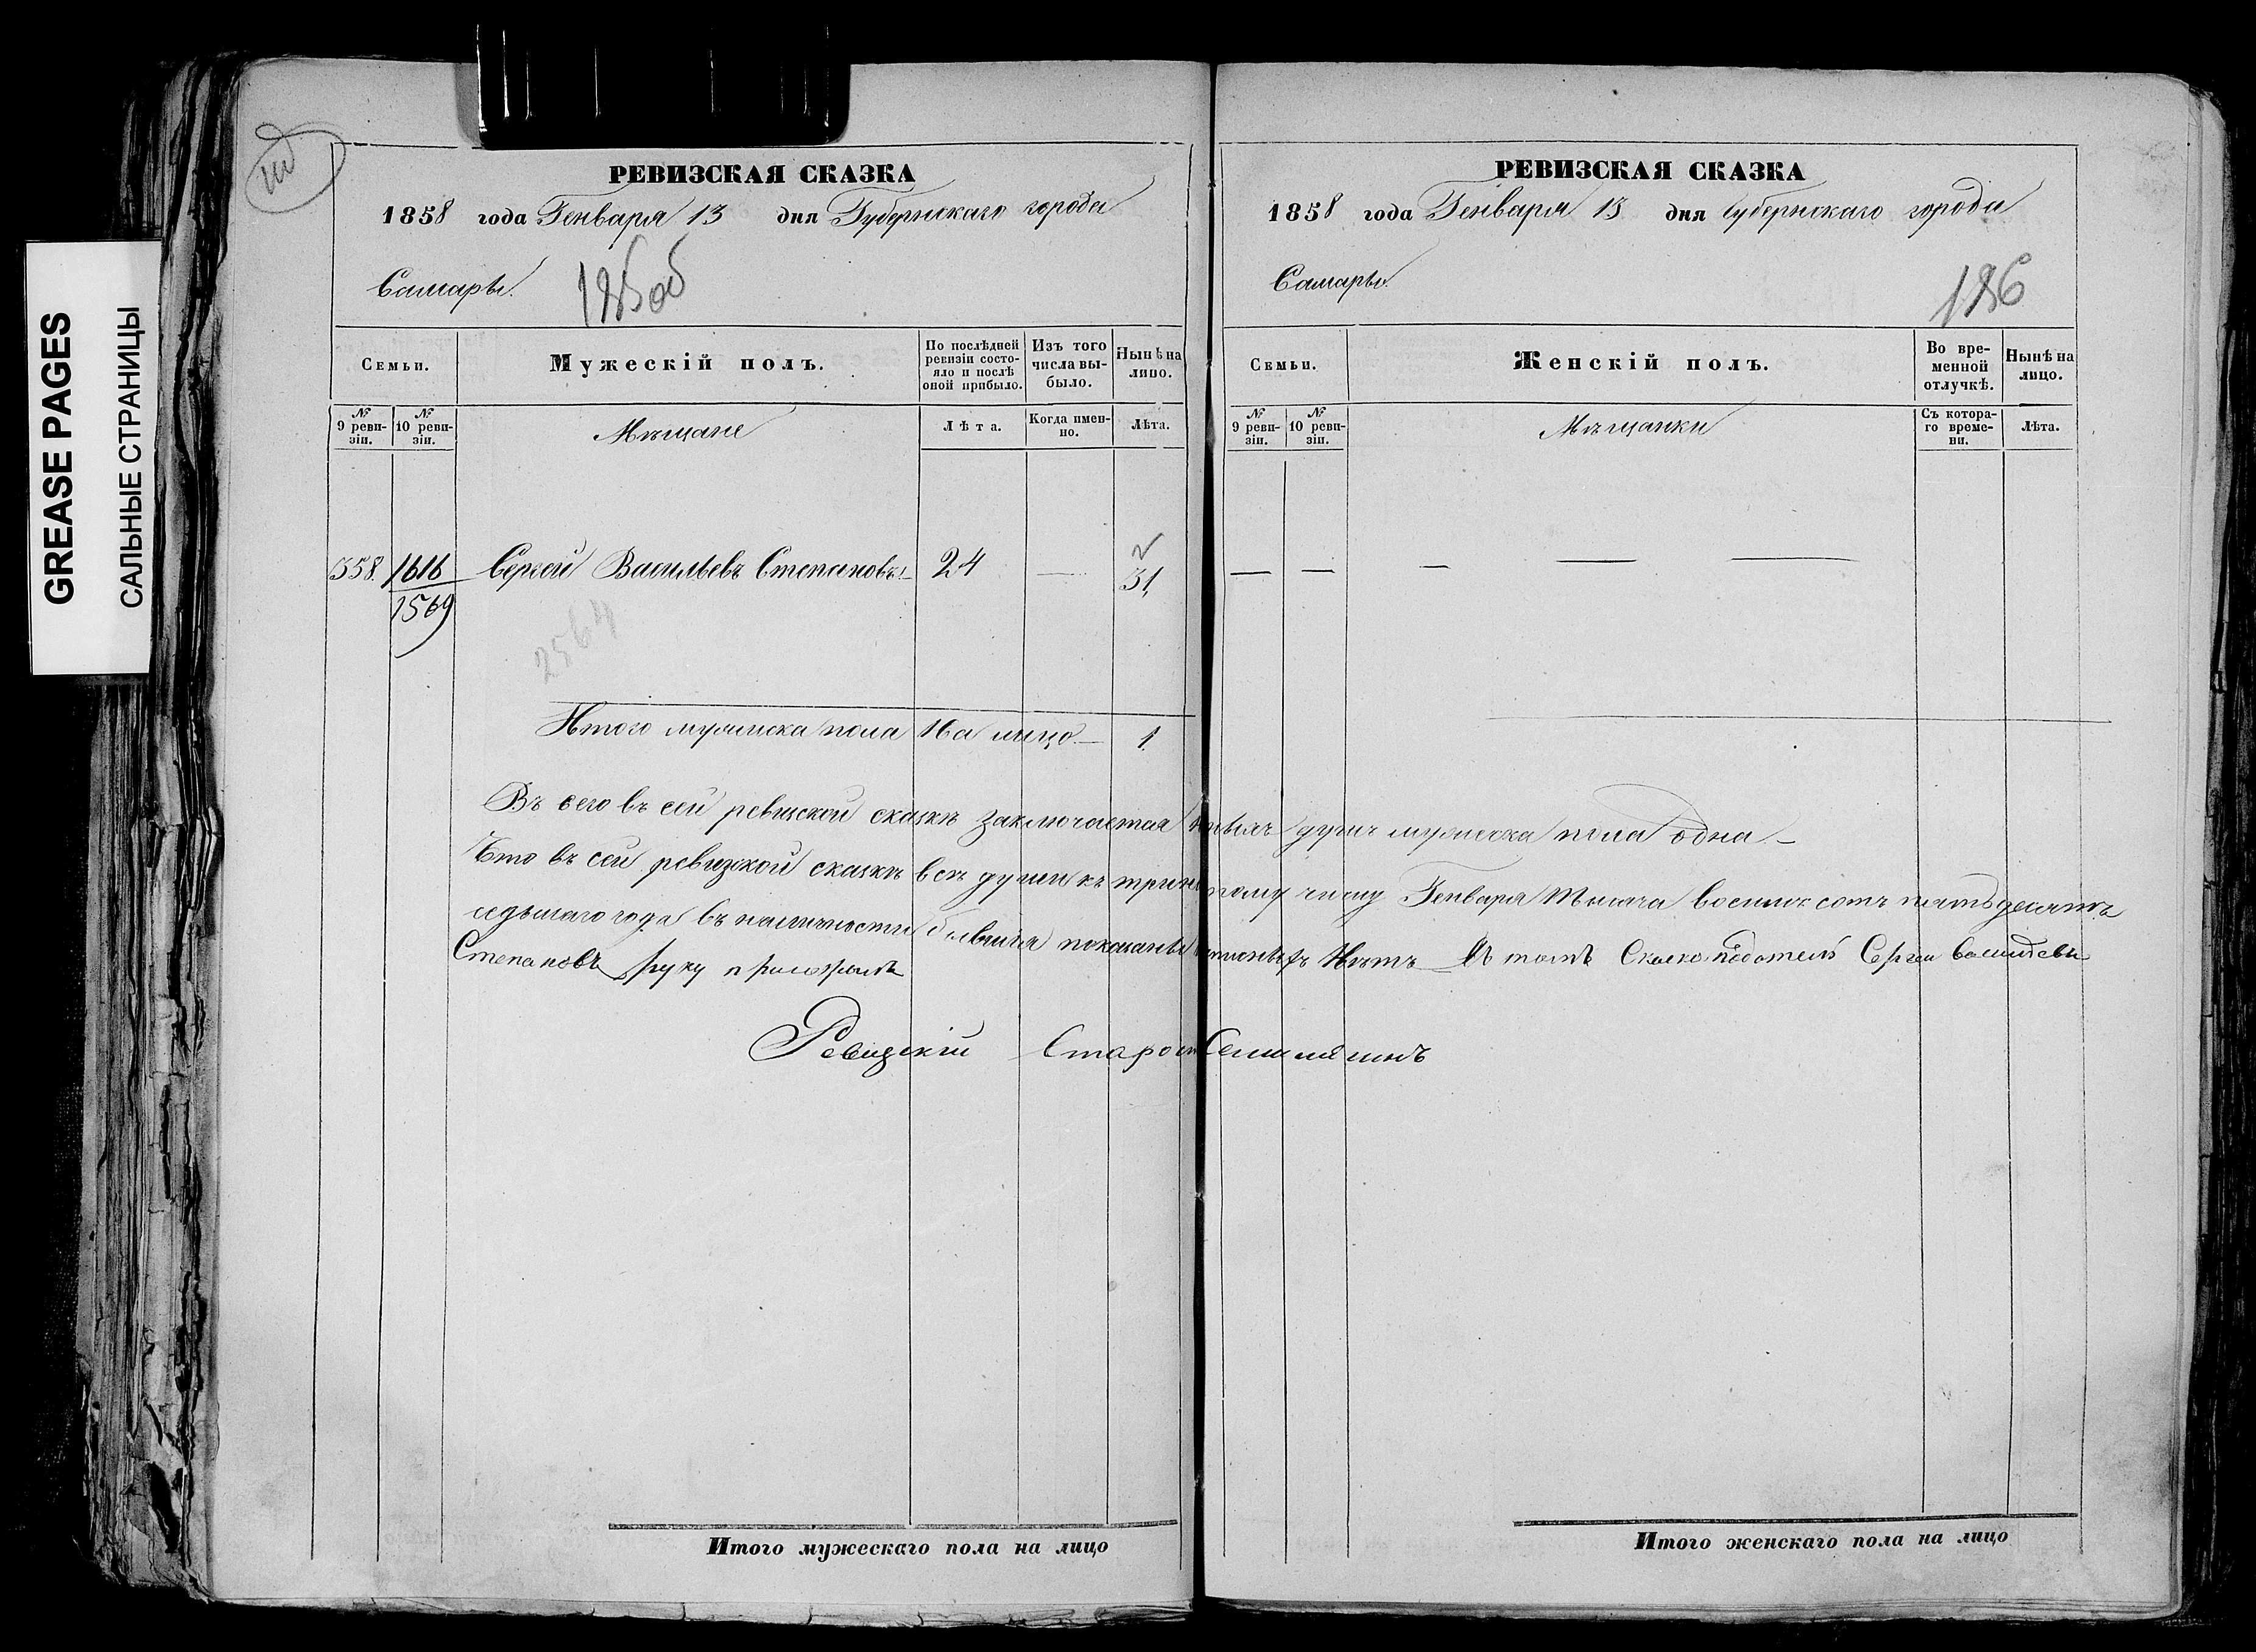 GREASE PAGES
САЛЬНЫЕ СТРАНИЦЫ
РЕВИЗСКАЯ СКАЗКА
1858 года Генваря 13 дня Губернскаго города
Самары.
185об
Семьи.
Мужескій полъ.
По послѣдней ревизіи состояло и послѣ оной прибыло.
Изъ того числа выбыло.
Нынѣ на лицо.
№ 9 ревизіи.
№ 10 ревизіи.
Мѣщане
Лѣта.
Когда именно.
Лѣта.
558. 1616 Сергей Васильевъ Степановъ 24 — 31
1569
2564
Итого мужеска пола на лицо — 1.
РЕВИЗСКАЯ СКАЗКА
1858 года Генваря 13 дня Губернскаго города
Самары.
186
Семьи.
Женскій полъ.
Во временной отлучкѣ.
Нынѣ на лицо.
№ 9 ревизіи.
№ 10 ревизіи.
Мѣщанки
Съ котораго времени.
Лѣта.
Въ сего въ сей ревиской сказкѣ заключается душъ мужеска пола одна —
Что въ сей ревизкой сказкѣ все души къ числу Генваря тысяча восемь сотъ пятьдесятъ
седьмаго года въ наличности бывшія показаны нѣтъ — Въ томъ Сказкоподатель Сергеи Василѣевъ
Степановъ руку приложилъ
Ревизскій Старо
Итого мужескаго пола на лицо
Итого женскаго пола на лицо